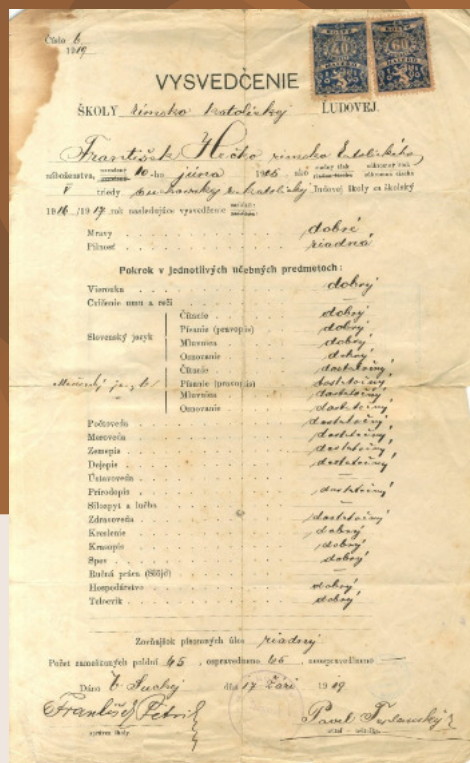 Číslo 6
1919
KOLEK 40 HALÉŘŮ
KOLEK 60 HALÉŘŮ
VYSVEDČENIE
ŠKOLY rimsko katolickej ĽUDOVEJ.
František Hečko rimsko katolického
náboženstva, 10-ho júna 1905, ako
V triedy suchovskej rk. katolickej ľudovej školy za školský
1916/1917 rok nasledujúce vysvedčenie
Mravy dobré
Pilnosť riadna
Pokrok v jednotlivých učebných predmetoch:
Vierouka dobrý
Cvičenie umu a reči —
Slovenský jazyk
Čítanie dobrý
Písanie (pravopis) dobrý
Mluvnica dobrý
Oznovanie dobrý
Maďarský jazyk
Čítanie dostatočný
Písanie (pravopis) dostatočný
Mluvnica dostatočný
Oznovanie dostatočný
Početoveda dostatočný
Meroveda dostatočný
Zemepis dostatočný
Dejepis dostatočný
Ústavoveda —
Prírodopis dostatočný
Silozpyt a lučba —
Zdravoveda dostatočný
Kreslenie dobrý
Krasopis dobrý
Spev dobrý
Ručná práca (Slöjd) —
Hospodárstvo dobrý
Telocvik dobrý
Zovňajšok písomných úloh riadny
Počet zameškaných poldní 45, ospravedlneno 45, neospravedlneno —
Dáno v Suchej dňa 17 září 1919
František Petrík
správca školy
Pavel
učiteľ – učiteľka.